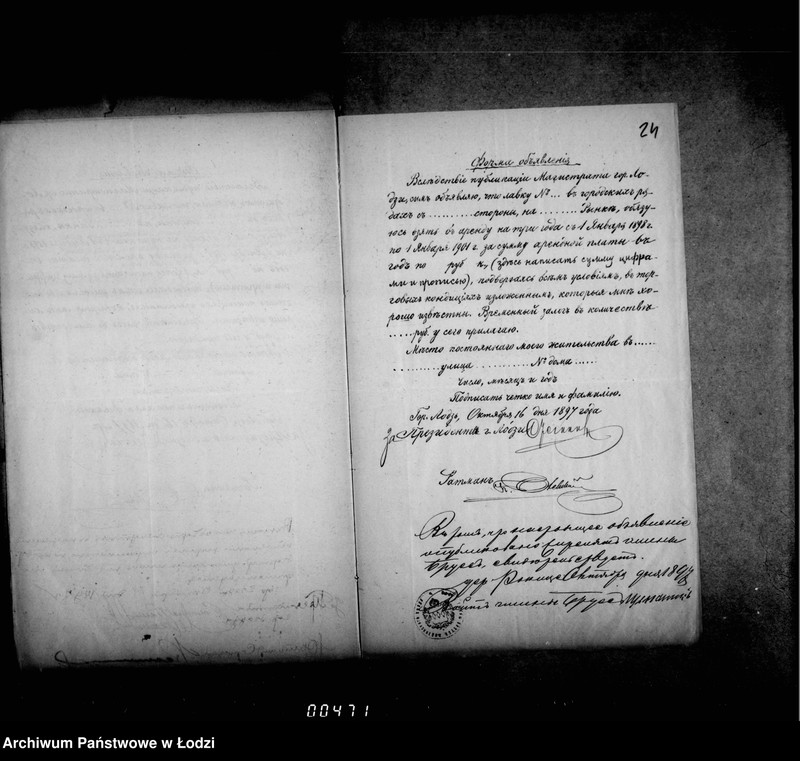 24
Форма объявленія
Вслѣдствіе публикаціи Магистрата гор. Ло-
дзи, симъ объявляю, что лавку № ... въ городскихъ ря-
дахъ съ ......... стороны, на ........ Рынкѣ, обязу-
юсь взять въ аренду на три года съ 1 Января 1898 г.
по 1 Января 1901 г. за сумму арендной платы въ
годъ по руб к. (здѣсь написать сумму цифра-
ми и прописью), подвергаясь всѣмъ условіямъ, въ тор-
говыхъ кондиціяхъ изложеннымъ, которыя мнѣ хо-
рошо извѣстны. Временный залогъ въ количествѣ
..... руб. у сего прилагаю.
Мѣсто постояннаго моего жительства въ ......
.......... улица .......... № дома ......
Число, мѣсяцъ и годъ
Подписать четко имя и фамилію.
Гор. Лодзь, Октября 16 дня 1897 года
За Президента г. Лодзи
Ратманъ
Въ томъ, что настоящее объявленіе
опубликовано въ гмины
Брусъ, свидѣтельствуетъ.
Октября дня 1897
Войтъ гмины Брусъ
00471
Archiwum Państwowe w Łodzi